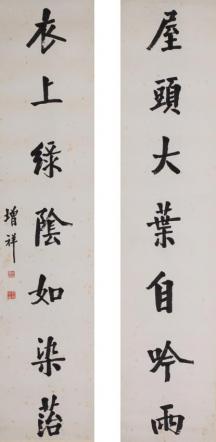 屋頭大葉自吟雨
衣上綠陰如染落
增祥